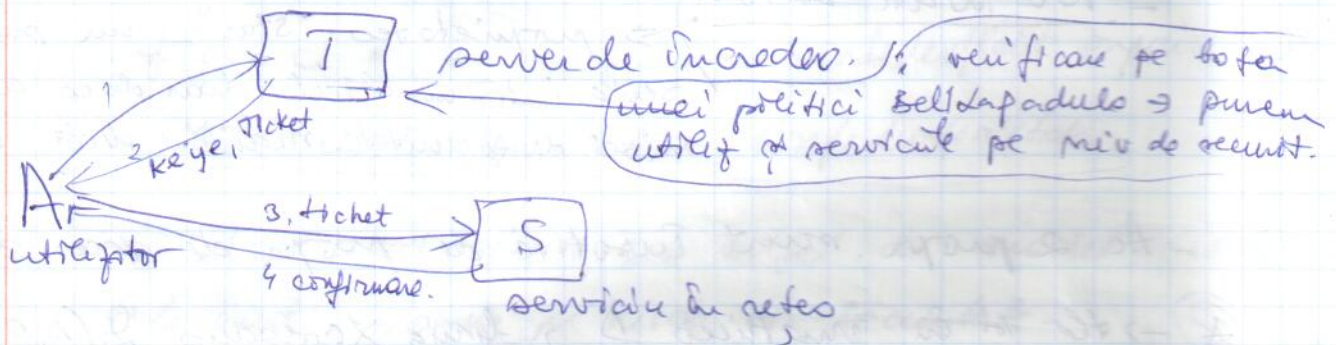 T server de încredere. : verificare pe baza
1 unei politici Bell Lapadula → punem
2 Keye, Ticket utiliz și serviciile pe niv de securit.
A 3. tichet S
utilizator 4 confirmare.
serviciu în rețea